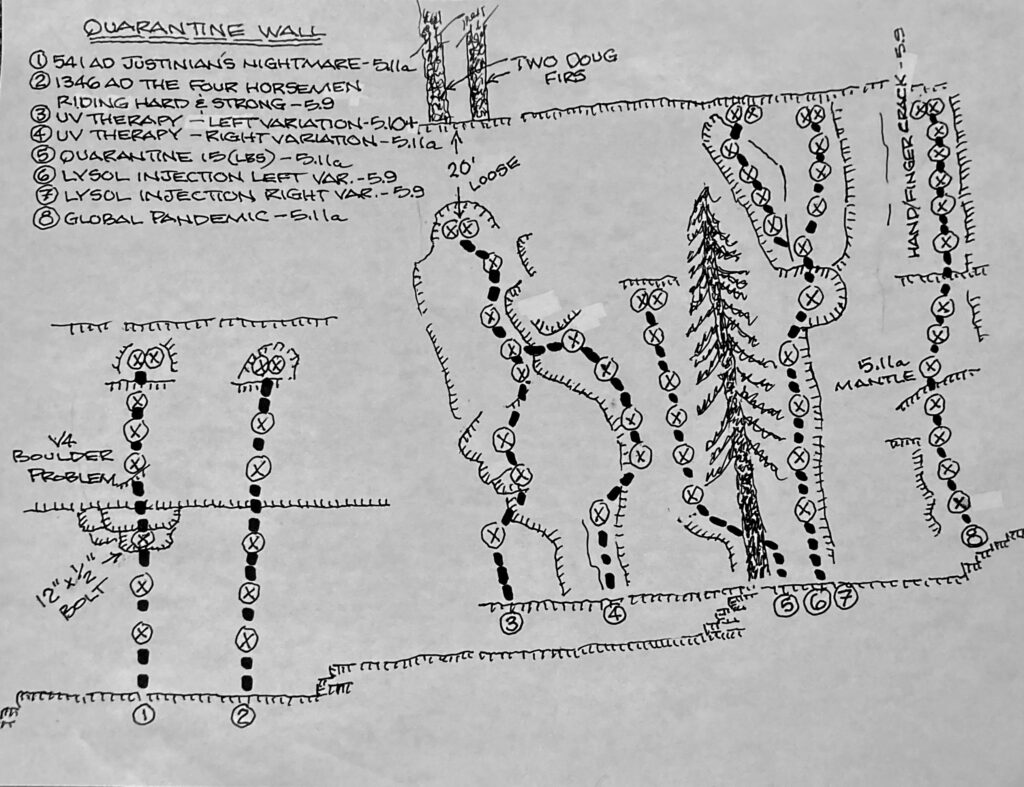 QUARANTINE WALL
① 541 AD JUSTINIAN'S NIGHTMARE-5.11a
② 1346 AD THE FOUR HORSEMEN
RIDING HARD & STRONG-5.9
③ UV THERAPY - LEFT VARIATION-5.10+
④ UV THERAPY - RIGHT VARIATION-5.11a
⑤ QUARANTINE 15(LBS)-5.11a
⑥ LYSOL INJECTION LEFT VAR.-5.9
⑦ LYSOL INJECTION RIGHT VAR.-5.9
⑧ GLOBAL PANDEMIC-5.11a
TWO DOUG
FIRS
20'
LOOSE
HAND/FINGER CRACK-5.9
5.11a
MANTLE
V4
BOULDER
PROBLEM
12" x 1/2"
BOLT
①
②
③
④
⑤
⑥
⑦
⑧